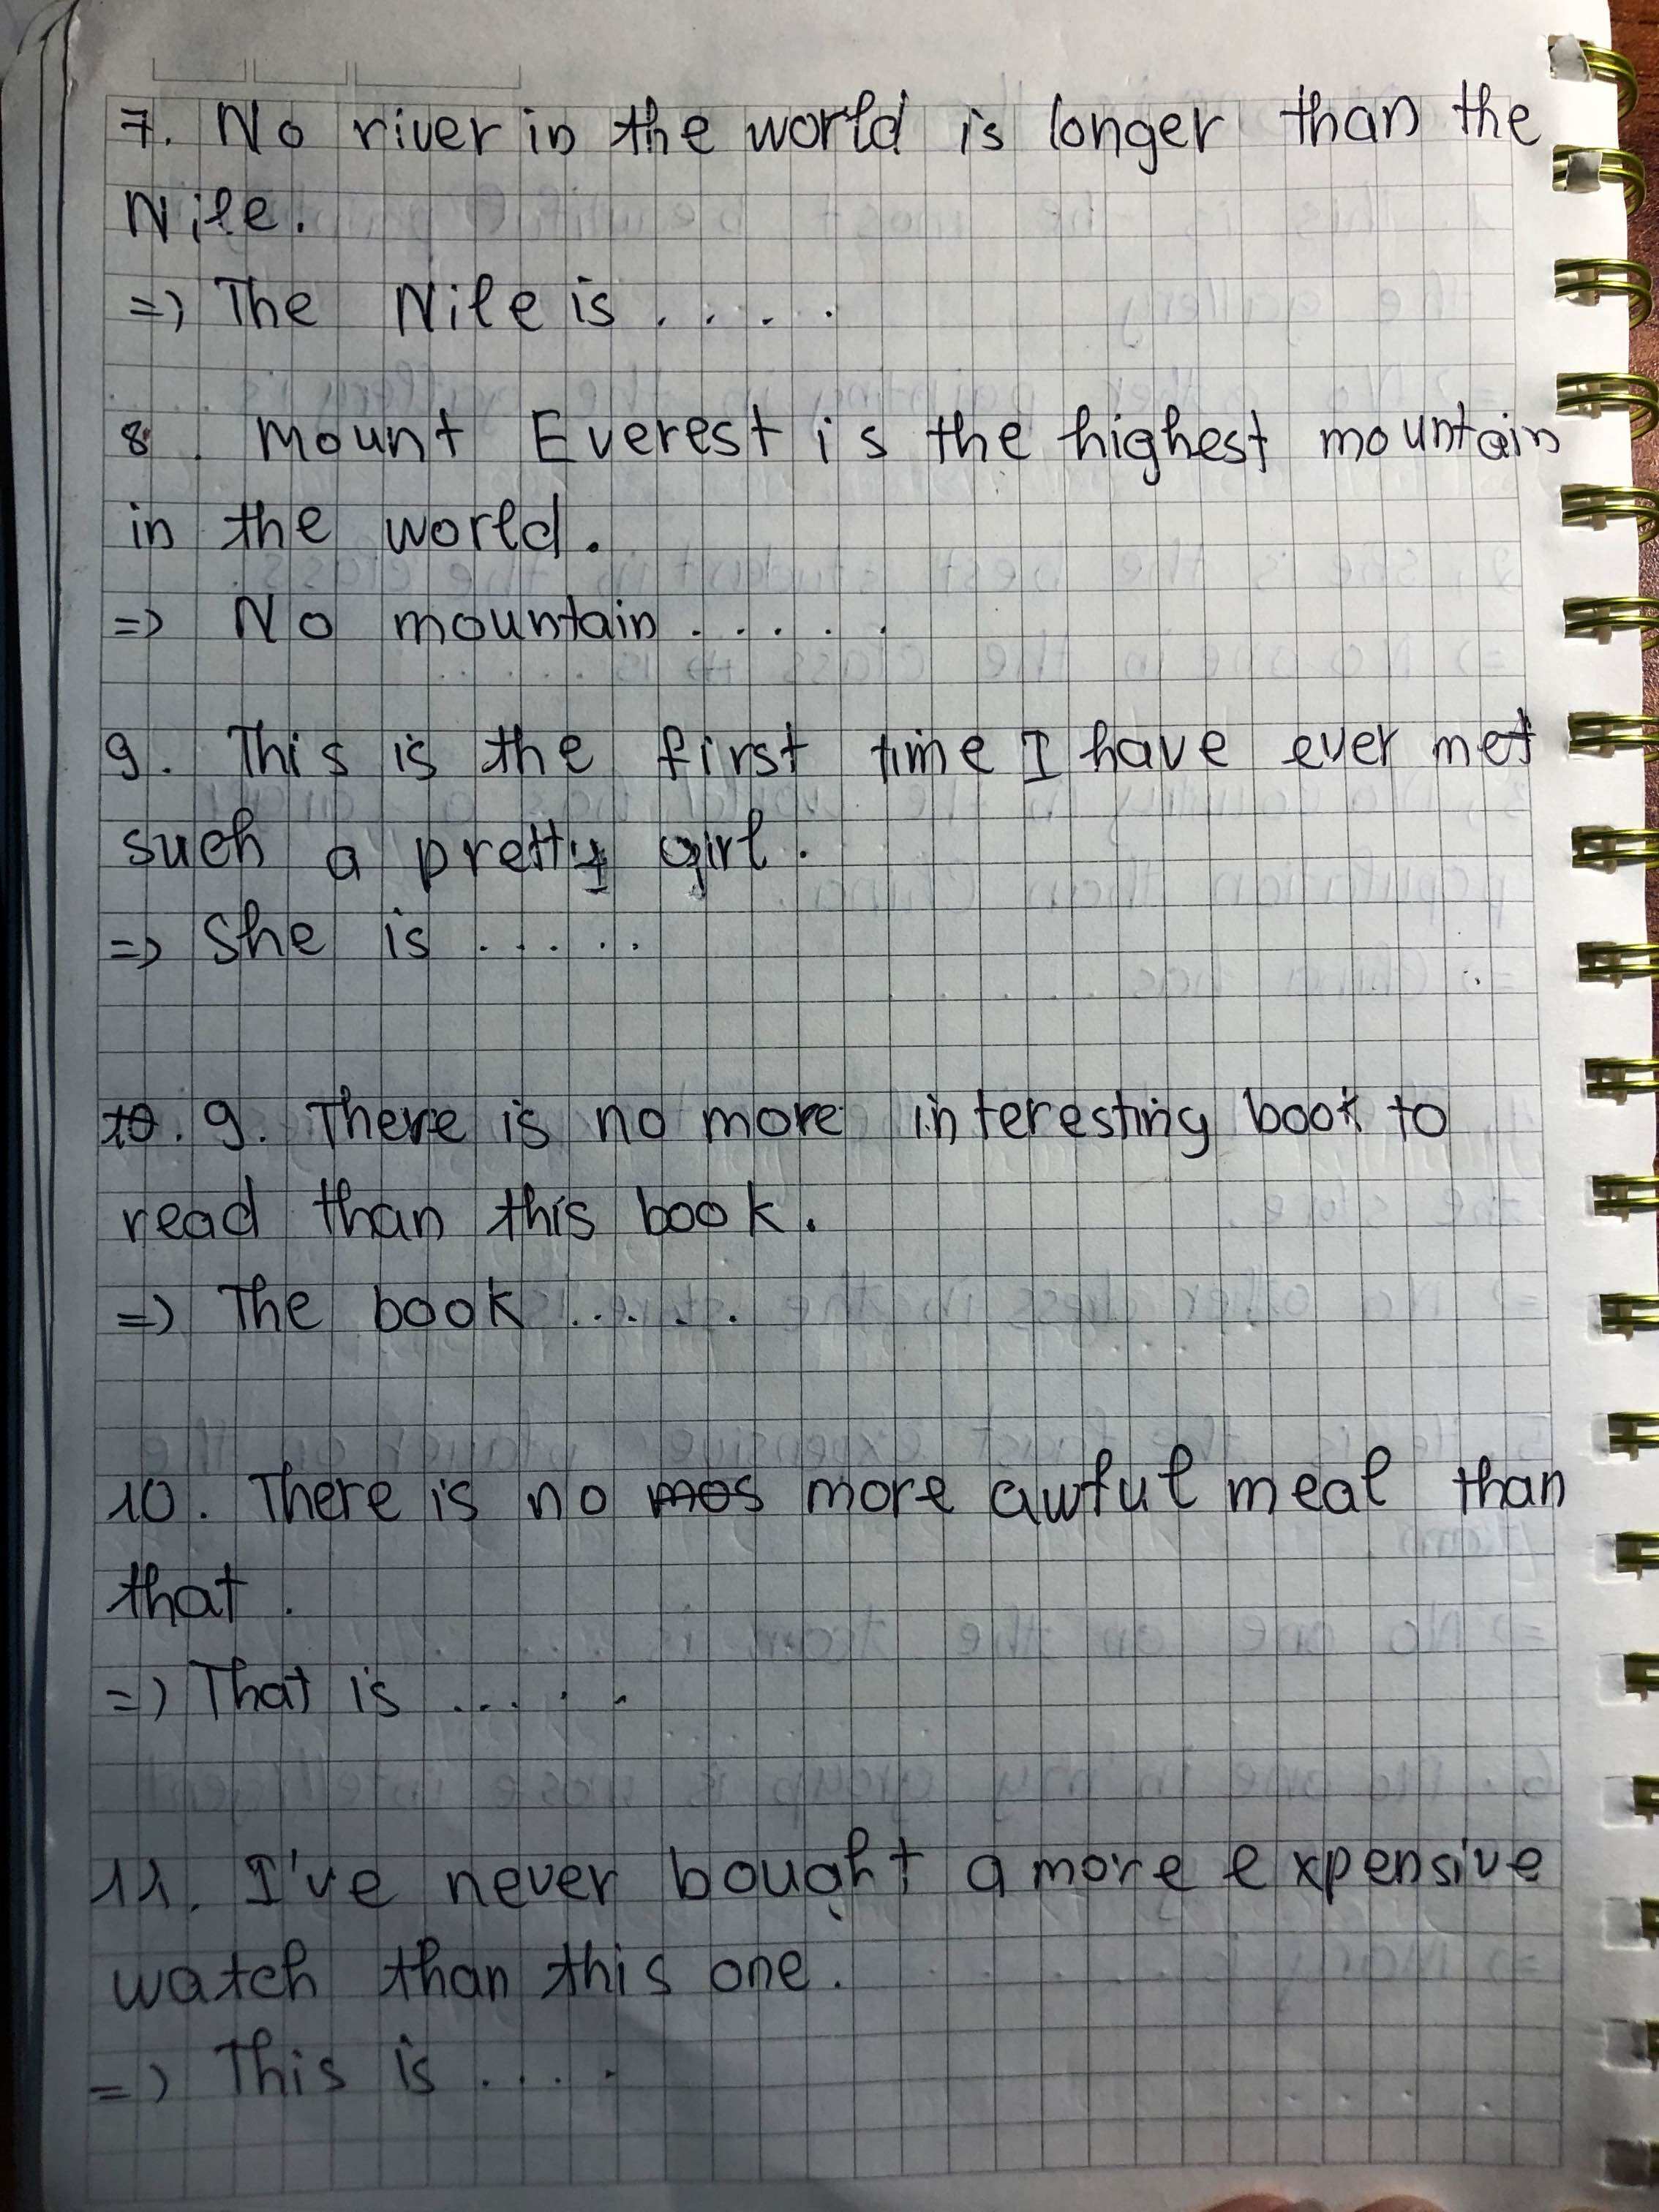 7. No river in the world is longer than the
Nile.
=> The Nile is . . . .
8. Mount Everest is the highest mountain
in the world.
=> No mountain . . . . .
9. This is the first time I have ever met
such a pretty girl.
=> She is . . . . .
10. 9. There is no more interesting book to
read than this book.
=> The book . . . . .
10. There is no mos more awful meal than
that.
=> That is . . . . .
11. I've never bought a more expensive
watch than this one.
=> This is . . . .